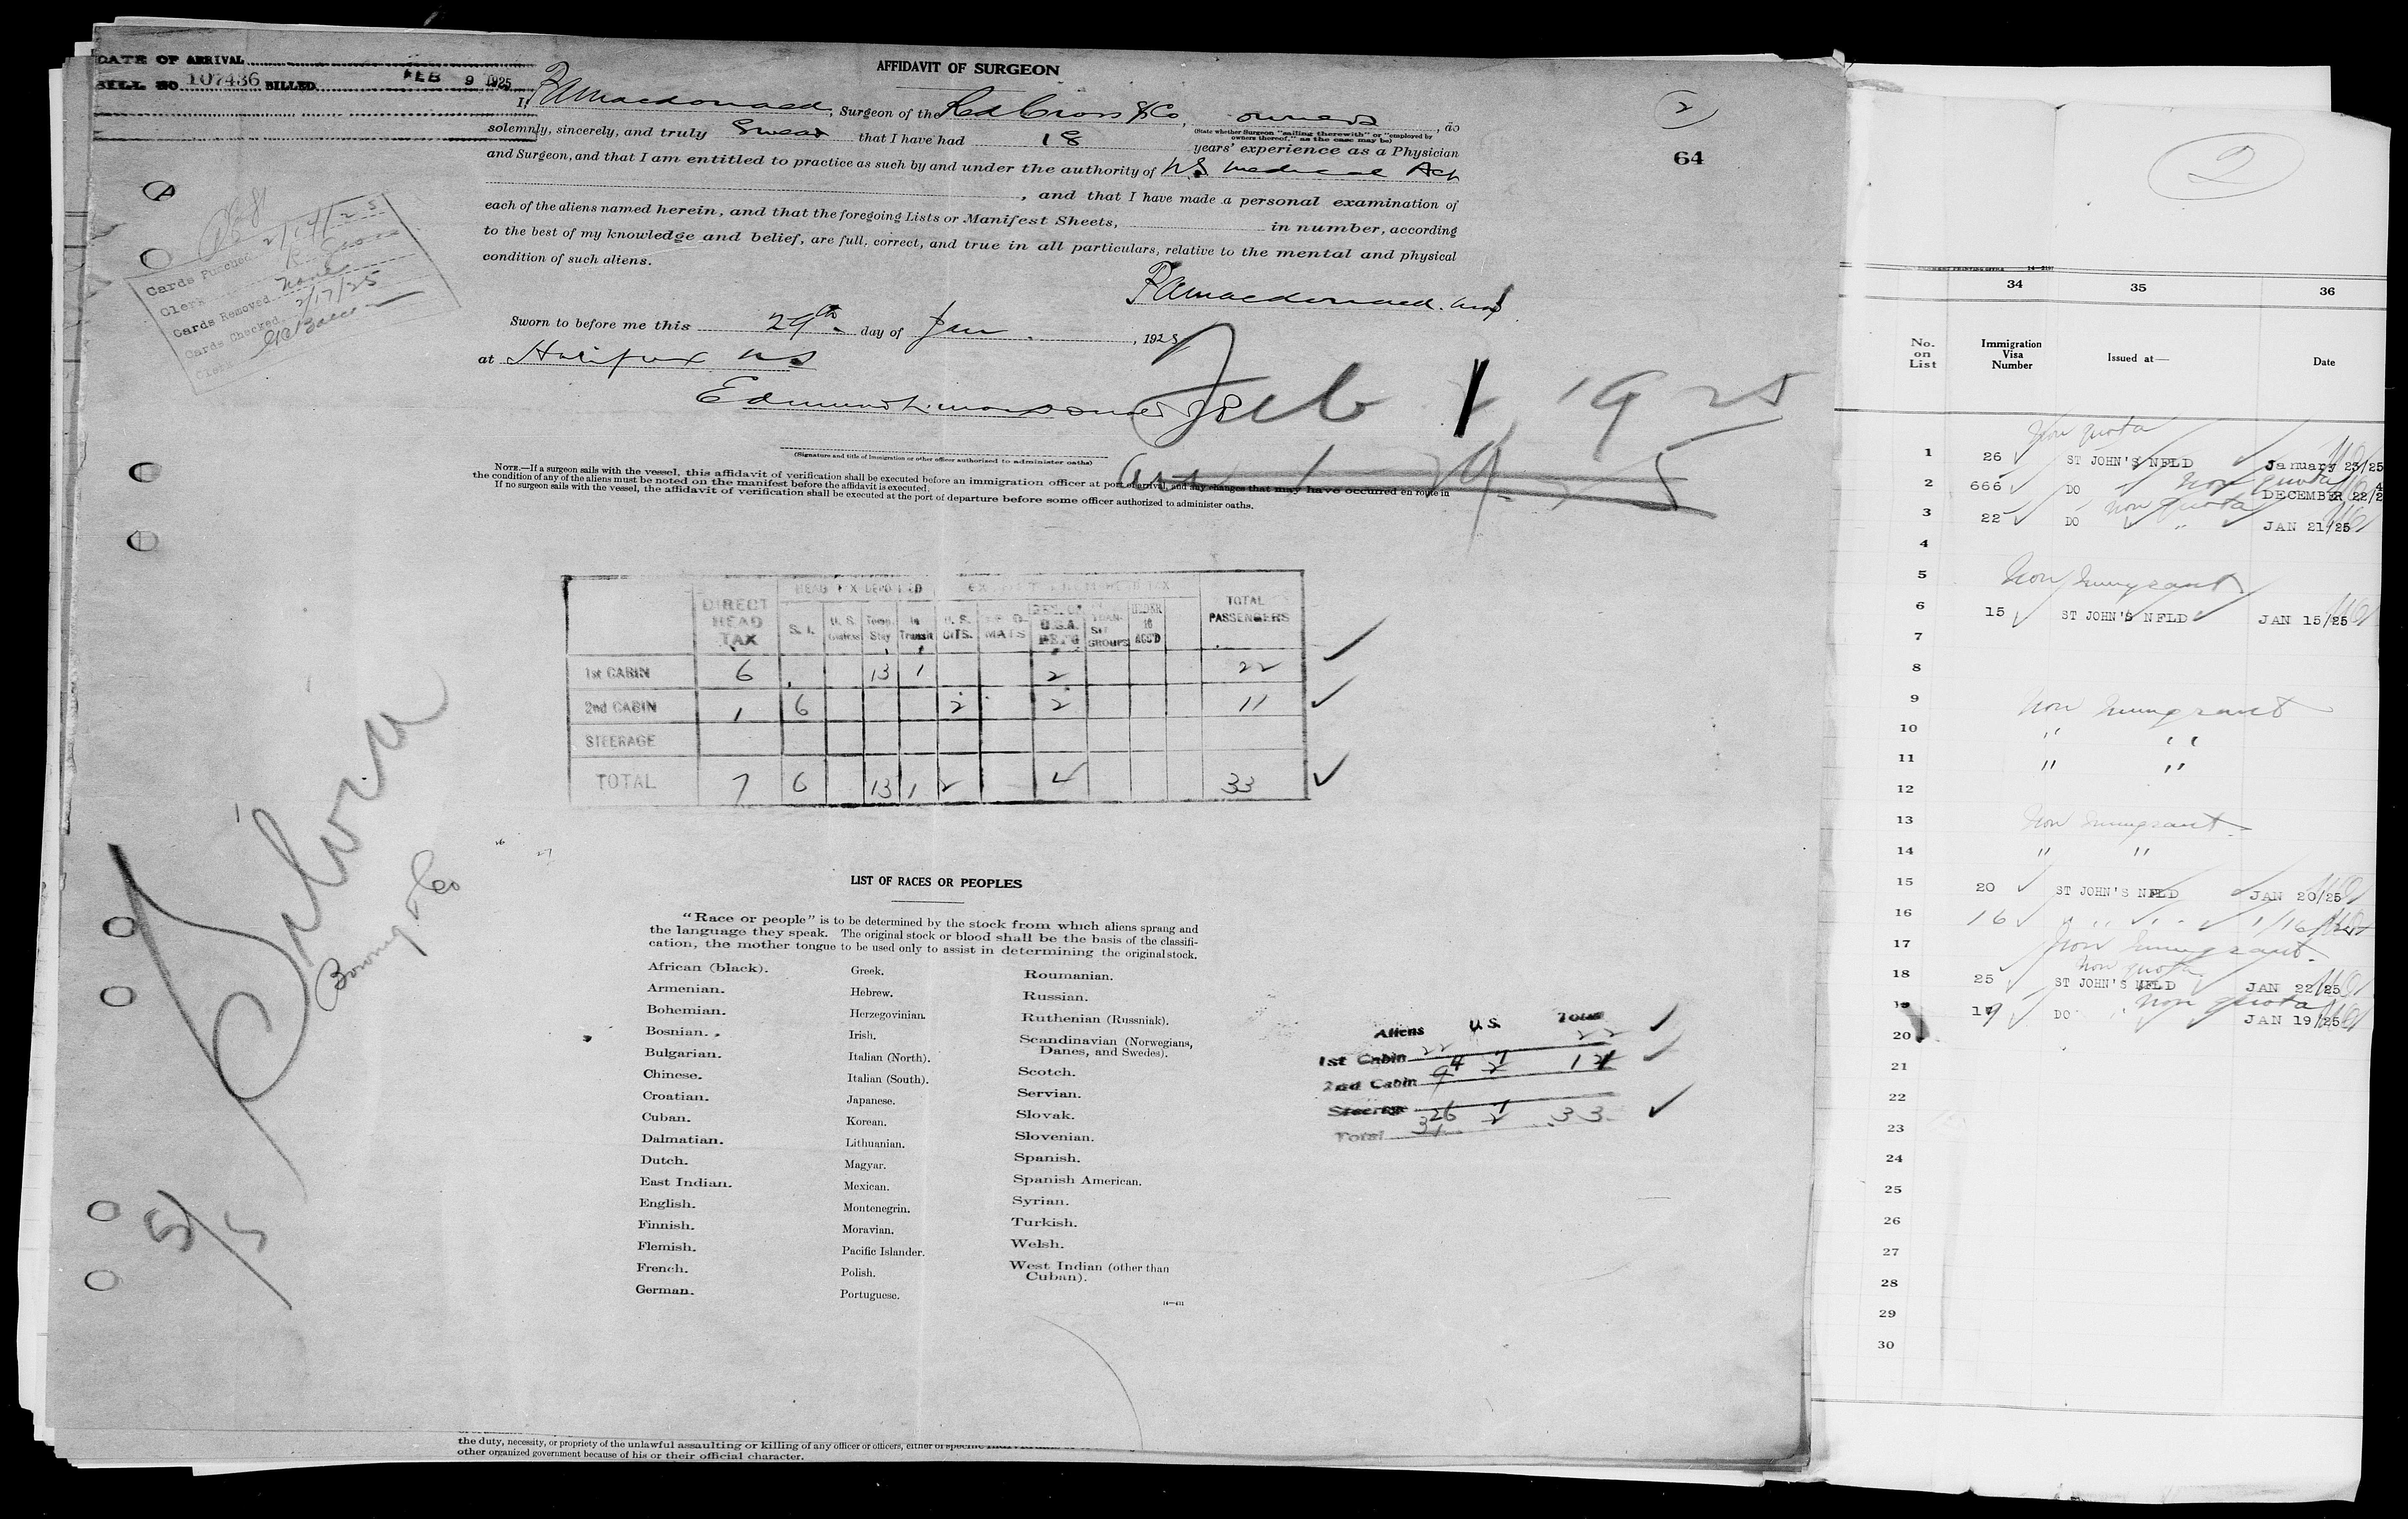 DATE OF ARRIVAL
BILL NO. 107436 BILLED FEB 9 1925
AFFIDAVIT OF SURGEON
2
64
I, Macdonald, Surgeon of the Red Cross Co, owners, do
(State whether Surgeon "sailing therewith" or "employed by owners thereof," as the case may be)
solemnly, sincerely, and truly Swear that I have had 18 years' experience as a Physician
and Surgeon, and that I am entitled to practice as such by and under the authority of N.S. Medical Act
, and that I have made a personal examination of
each of the aliens named herein, and that the foregoing Lists or Manifest Sheets, in number, according
to the best of my knowledge and belief, are full, correct, and true in all particulars, relative to the mental and physical
condition of such aliens.
Macdonald. MD
Sworn to before me this 29th day of Jan, 1925
at Halifax NS
Feb 1 1925
(Signature and title of immigration or other officer authorized to administer oaths)
NOTE.—If a surgeon sails with the vessel, this affidavit of verification shall be executed before an immigration officer at port of arrival, and any changes that may have occurred en route in
the condition of any of the aliens must be noted on the manifest before the affidavit is executed.
If no surgeon sails with the vessel, the affidavit of verification shall be executed at the port of departure before some officer authorized to administer oaths.
Cards Punched 2/14/25
Clerk
Cards Removed None
Cards Checked 2/17/25
Clerk
HEAD TAX DEPOSITED
DIRECT HEAD TAX S. I. U. S. Temp. Stay In Transit U. S. CITS. U.S.A. TRANSIT GROUPS UNDER 16 ACC'D TOTAL PASSENGERS
1st CABIN 6 13 1 2 22
2nd CABIN 1 6 2 2 11
STEERAGE
TOTAL 7 6 13 1 2 4 33
Silvia
Bowring & Co
5/5
LIST OF RACES OR PEOPLES
"Race or people" is to be determined by the stock from which aliens sprang and
the language they speak. The original stock or blood shall be the basis of the classifi-
cation, the mother tongue to be used only to assist in determining the original stock.
African (black).
Armenian.
Bohemian.
Bosnian.
Bulgarian.
Chinese.
Croatian.
Cuban.
Dalmatian.
Dutch.
East Indian.
English.
Finnish.
Flemish.
French.
German.
Greek.
Hebrew.
Herzegovinian.
Irish.
Italian (North).
Italian (South).
Japanese.
Korean.
Lithuanian.
Magyar.
Mexican.
Montenegrin.
Moravian.
Pacific Islander.
Polish.
Portuguese.
Roumanian.
Russian.
Ruthenian (Russniak).
Scandinavian (Norwegians,
Danes, and Swedes).
Scotch.
Servian.
Slovak.
Slovenian.
Spanish.
Spanish American.
Syrian.
Turkish.
Welsh.
West Indian (other than
Cuban).
Aliens U.S. Total
1st Cabin 22 22
2nd Cabin 9 2 11
Steerage
Total 31 2 33
the duty, necessity, or propriety of the unlawful assaulting or killing of any officer or officers, either of specific
other organized government because of his or their official character.
2
34 35 36
No. on List Immigration Visa Number Issued at— Date
Non quota
1 26 ST JOHN'S NFLD January 23/25
Non quota
2 666 DO DECEMBER 22/24
Non quota
3 22 DO JAN 21/25
4
5 Non Immigrant
6 15 ST JOHN'S NFLD JAN 15/25
7
8
9 Non Immigrant
10 " "
11 " "
12
13 Non Immigrant
14 " "
15 20 ST JOHN'S NFLD JAN 20/25
16 16 " " " 1/16/
17 Non Immigrant
Non quota
18 25 ST JOHN'S NFLD JAN 22/25
Non quota
19 19 DO JAN 19/25
20
21
22
23
24
25
26
27
28
29
30